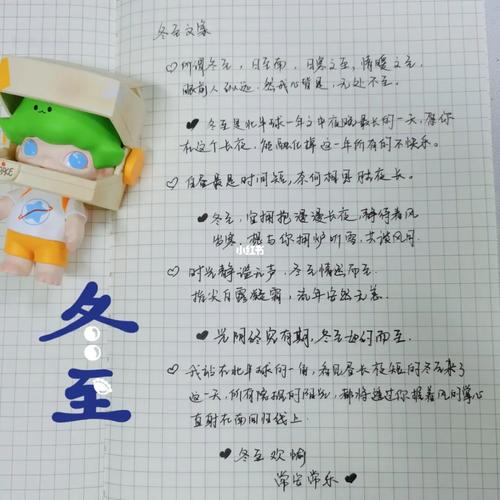 冬至文案
♡ 所谓冬至，日至南，日思之至，情暖之至，
眼前人 纵远，然我心皆是，无处不至。
♥ 冬至是北半球一年之中夜晚最长的一天，愿你
在这个长夜，能融化掉这一年所有的不快乐。
♡ 白昼最是时间短，奈何相思陆夜长。
♥ 冬至，宜拥抱漫漫长夜，静待着风
出寒，想与你拥炉听雪，共谈风月
小红书
♡ 时光静谧无声，冬至悄然而至。
指尖白露凝霜，流年安然无恙。
♥ 光阴终究有期，冬至如约而至。
♡ 我站在北半球的一角，看见昼长夜短的冬至来了
这一天，所有陈旧的阳光，都将透过你握着风的掌心
直射在南回归线上
♥ 冬至欢愉
常安常乐 ♥
冬至